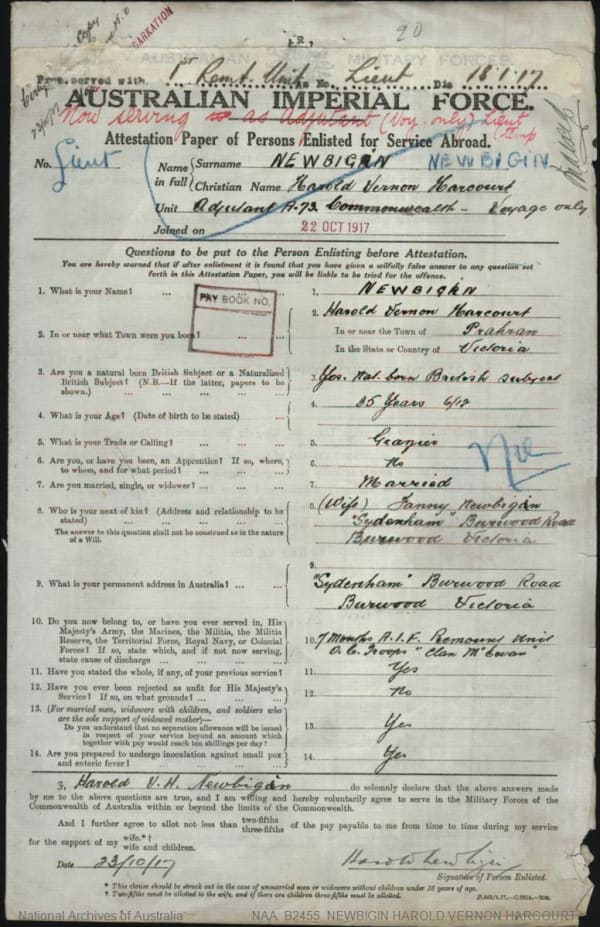 Copy
EMBARKATION
20
AUSTRALIAN MILITARY FORCES.
Prev. served with 1ST Remt. Unit as No. Lieut Dis 18.1.17
AUSTRALIAN IMPERIAL FORCE.
Now serving as Adjutant (Voy. only) Lieut
23/10/17
Attestation Paper of Persons Enlisted for Service Abroad.
No. Lieut
Name in full
Surname NEWBIGIN NEWBIGIN
Christian Name Harold Vernon Harcourt
Unit Adjutant A.73 Commonwealth - Voyage only
Joined on 22 OCT 1917
Questions to be put to the Person Enlisting before Attestation.
You are hereby warned that if after enlistment it is found that you have given a wilfully false answer to any question set
forth in this Attestation Paper, you will be liable to be tried for the offence.
PAY BOOK NO.
1. What is your Name? ... ... 1. NEWBIGIN
Harold Vernon Harcourt
2. In or near what Town were you born? ... ... 2. In or near the Town of Prahran
In the State or Country of Victoria
3. Are you a natural born British Subject or a Naturalized
British Subject? (N.B.—If the latter, papers to be
shown.) ... ... 3. Yes. Nat. born British subject
4. What is your Age? (Date of birth to be stated) ... 4. 35 Years 6/12
5. What is your Trade or Calling? ... ... 5. Grazier
6. Are you, or have you been, an Apprentice? If so, where,
to whom, and for what period? ... ... 6. No
Nil
7. Are you married, single, or widower? ... ... 7. Married
8. Who is your next of kin? (Address and relationship to be
stated) ... ... 8. (Wife) Fanny Newbigin
"Sydenham" Burwood Road
Burwood Victoria
The answer to this question shall not be construed as in the nature
of a Will.
9. What is your permanent address in Australia? ... ... 9. "Sydenham" Burwood Road
Burwood Victoria
10. Do you now belong to, or have you ever served in, His
Majesty's Army, the Marines, the Militia, the Militia
Reserve, the Territorial Force, Royal Navy, or Colonial
Forces? If so, state which, and if not now serving,
state cause of discharge ... ... 10. 7 Months A.I.F. Remount Unit
O.C. Troops "Clan McEwan"
11. Have you stated the whole, if any, of your previous service? 11. Yes
12. Have you ever been rejected as unfit for His Majesty's
Service? If so, on what grounds? ... ... 12. No
13. (For married men, widowers with children, and soldiers who
are the sole support of widowed mother)—
Do you understand that no separation allowance will be issued
in respect of your service beyond an amount which
together with pay would reach ten shillings per day? 13. Yes
14. Are you prepared to undergo inoculation against small pox
and enteric fever? ... ... 14. Yes
I, Harold V. H. Newbigin do solemnly declare that the above answers made
by me to the above questions are true, and I am willing and hereby voluntarily agree to serve in the Military Forces of the
Commonwealth of Australia within or beyond the limits of the Commonwealth.
And I further agree to allot not less than two-fifths three-fifths of the pay payable to me from time to time during my service
for the support of my wife.*† wife and children.
Date 23/10/17 Harold Newbigin
Signature of Person Enlisted.
* This clause should be struck out in the case of unmarried men or widowers without children under 16 years of age.
† Two-fifths must be allotted to the wife, and if there are children three-fifths must be allotted.
National Archives of Australia NAA B2455 NEWBIGIN HAROLD VERNON HARCOURT